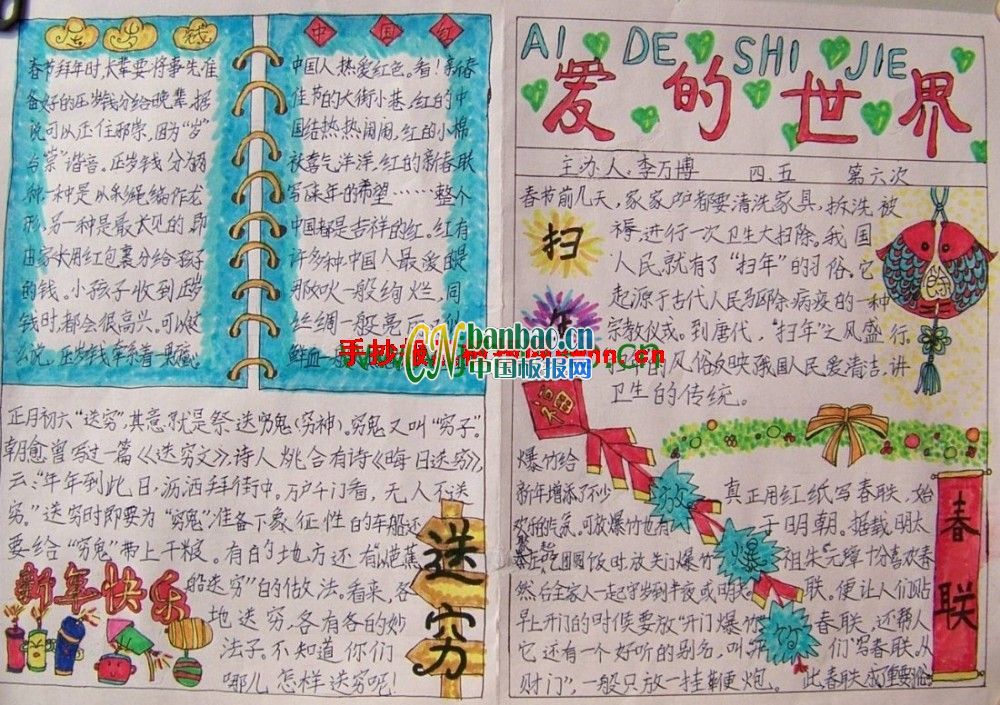 压岁钱
春节拜年时,长辈要将事先准
备好的压岁钱分给晚辈,据
说可以压住邪祟,因为"岁"
与"祟"谐音。压岁钱分为两
种,一种是以彩绳编作龙
形,另一种是最常见的,即
由家长用红包裹分给孩子
的钱。小孩子收到压岁
钱时,都会很高兴,可以这
么说,压岁钱牵系着
中国红
中国人热爱红色。看!新春
佳节的大街小巷,红的中
国结热热闹闹,红的小棉
袄喜气洋洋,红的新春联
写来年的希望……整个
中国都是吉祥的红。红有
许多种,中国人最爱的是
那火一般绚烂,同
丝绸一般亮丽
鲜血一般
正月初六"送穷",其意就是祭送穷鬼(穷神)。穷鬼又叫"穷子"。
朝愈曾写过一篇《送穷文》,诗人姚合有诗《晦日送穷》,
云:"年年到此日,沥洒拜街中。万户千门看,无人不送
穷。"送穷时即要为"穷鬼"准备下象征性的车船,还
要给"穷鬼"带上干粮。有的地方还有"燃蕉
船送穷"的做法。看来,各
地送穷,各有各的妙
法子。不知道你们
哪儿怎样送穷呢!
送穷
新年快乐
AI DE SHI JIE
爱的世界
主办人:李万博 四.五 第六次
扫年
春节前几天,家家户户都要清洗家具,拆洗被
褥,进行一次卫生大扫除。我国
人民就有了"扫年"的习俗。它
起源于古代人民驱除病疫的一种
宗教仪式。到唐代,"扫年"之风盛行。
的风俗反映我国人民爱清洁,讲
卫生的传统。
福
除
放爆竹
爆竹给
新年增添了不少
欢乐的气氛。可放爆竹也有
吃团圆饭时放关门爆竹
然后全家人一起守岁到半夜或明天
早上开门的时候要放"开门爆竹"
它还有一个好听的别名,叫
财门",一般只放一挂鞭炮。
真正用红纸写春联,始
于明朝。据载,明太
祖朱元璋十分喜欢春
联,便让人们贴
春联,还帮人
们写春联,从
此,春联成了重要俗
春联
手抄报
banbao.cn
中国板报网